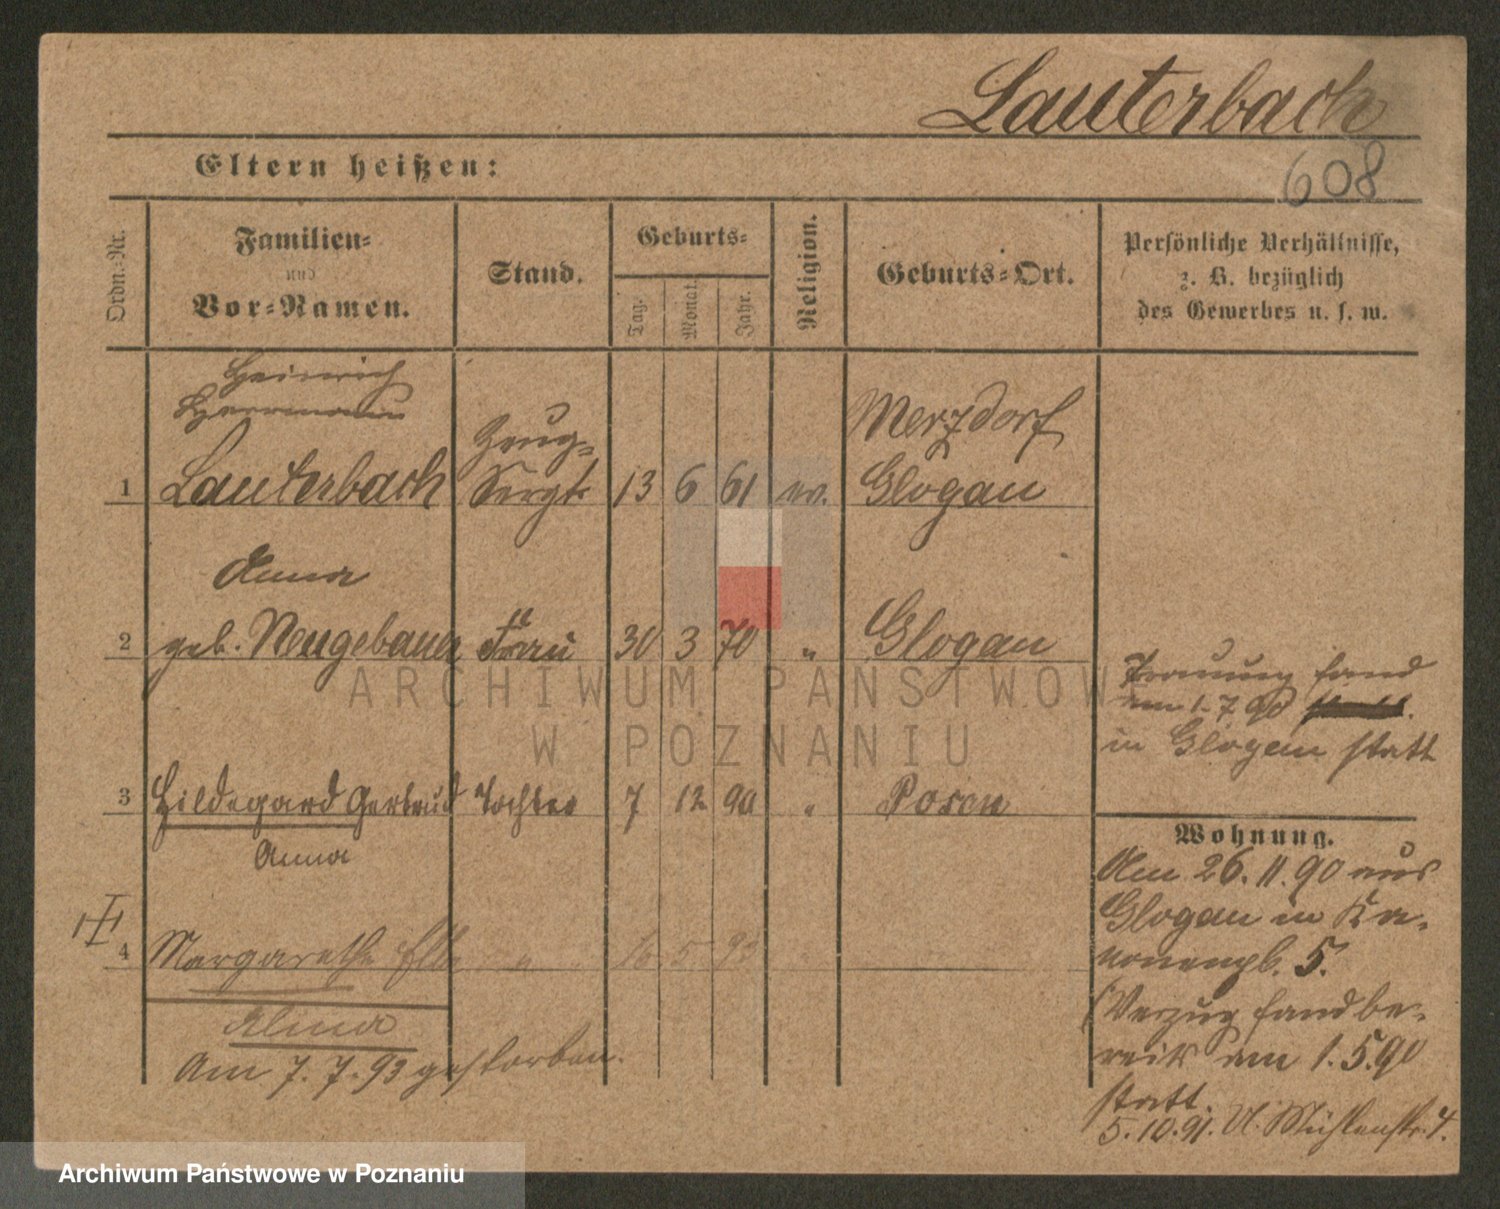 Lauterbach
608
Eltern heißen:
Ordn.-Nr.
Familien-
und
Vor-Namen.
Stand.
Geburts-
Tag.
Monat.
Jahr.
Religion.
Geburts-Ort.
Persönliche Verhältnisse,
z. B. bezüglich
des Gewerbes u. s. w.
Heinrich
Herrmann
Zeug- Merzdorf
1 Lauterbach Sergt. 13 6 61 ev. Glogau
Anna
2 geb. Neugebauer Frau 30 3 70 " Glogau
Trauung fand
am 1.7.90
in Glogau statt
3 Hildegard Gertrud Tochter 7 12 90 " Posen
Anna
4 Margarethe Ella " 16 5 93
Alma
Am 7.7.93 gestorben.
Wohnung.
Am 26.11.90 aus
Glogau in Ka-
nonenpl. 5.
(Verzug fand be-
reits am 1.5.90
statt.
5.10.91. U. Mühlenstr. 4.
ARCHIWUM PAŃSTWOWE
W POZNANIU
Archiwum Państwowe w Poznaniu